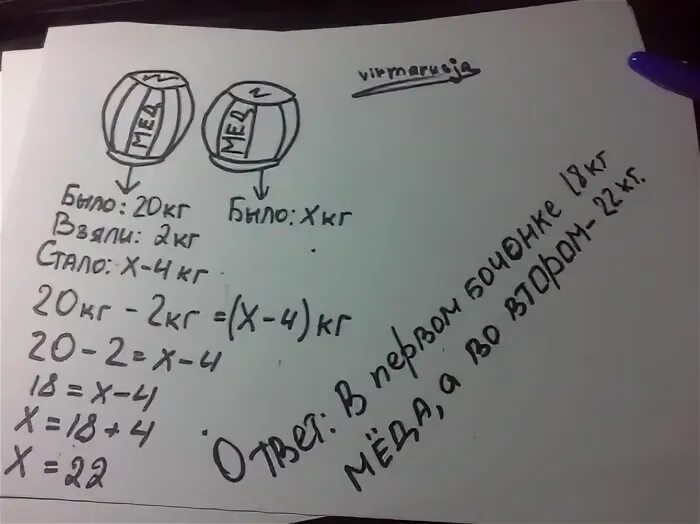 virmarusja
МЕД
МЕД
Было: 20кг
Взяли: 2кг
Стало: х-4кг
Было: хкг
20кг - 2кг = (х-4) кг
20 - 2 = х-4
18 = х-4
х = 18 + 4
х = 22
Ответ: В первом бочонке 18кг
мёда, а во втором - 22кг.